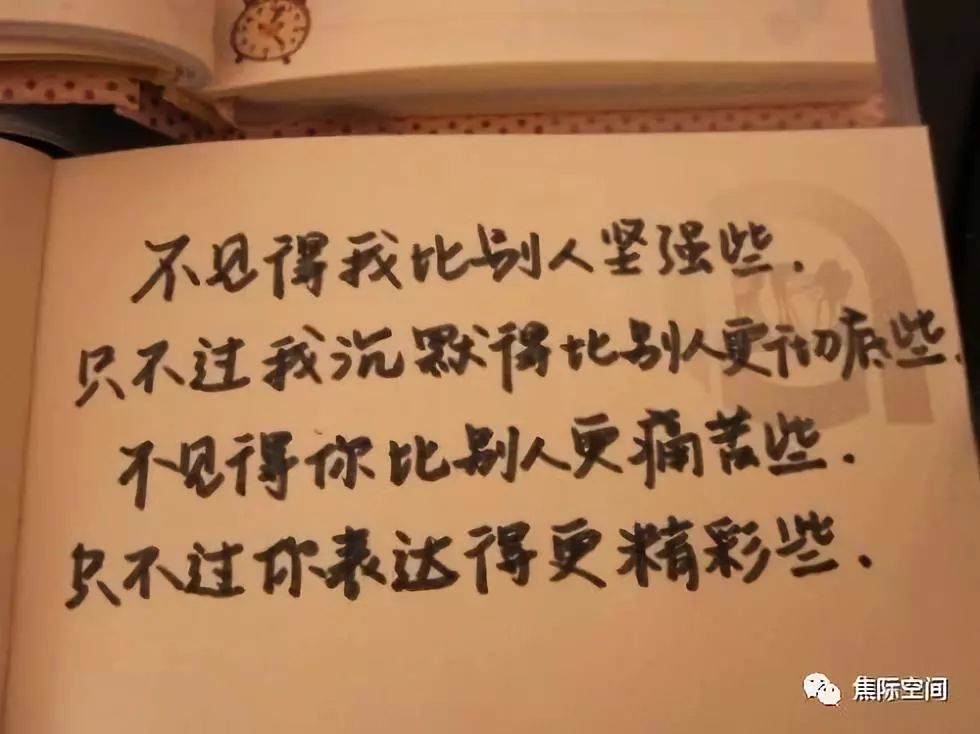 不见得我比别人坚强些.
只不过我沉默得比别人更彻底些.
不见得你比别人更痛苦些.
只不过你表达得更精彩些.
焦际空间